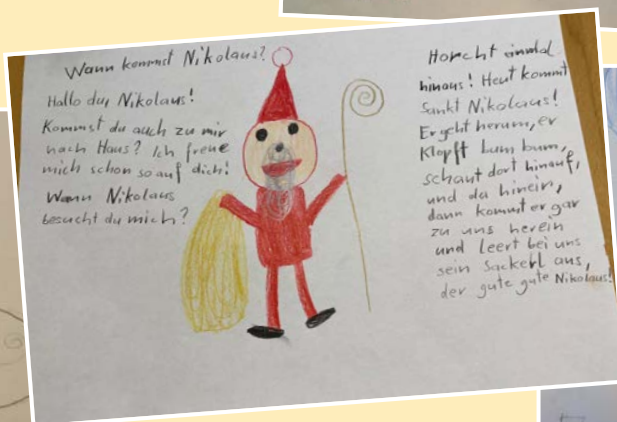 Wann kommst Nikolaus?
Hallo du, Nikolaus!
Kommst du auch zu mir
nach Haus? Ich freue
mich schon so auf dich!
Wann Nikolaus
besucht du mich?
Horcht einmal
hinaus! Heut kommt
Sankt Nikolaus!
Er geht herum, er
Klopft bum bum,
schaut dort hinauf,
und da hinein,
dann kommt er gar
zu uns herein
und leert bei uns
sein Sackerl aus,
der gute gute Nikolaus!